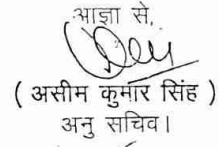 आज्ञा से,
( असीम कुमार सिंह )
अनु सचिव।